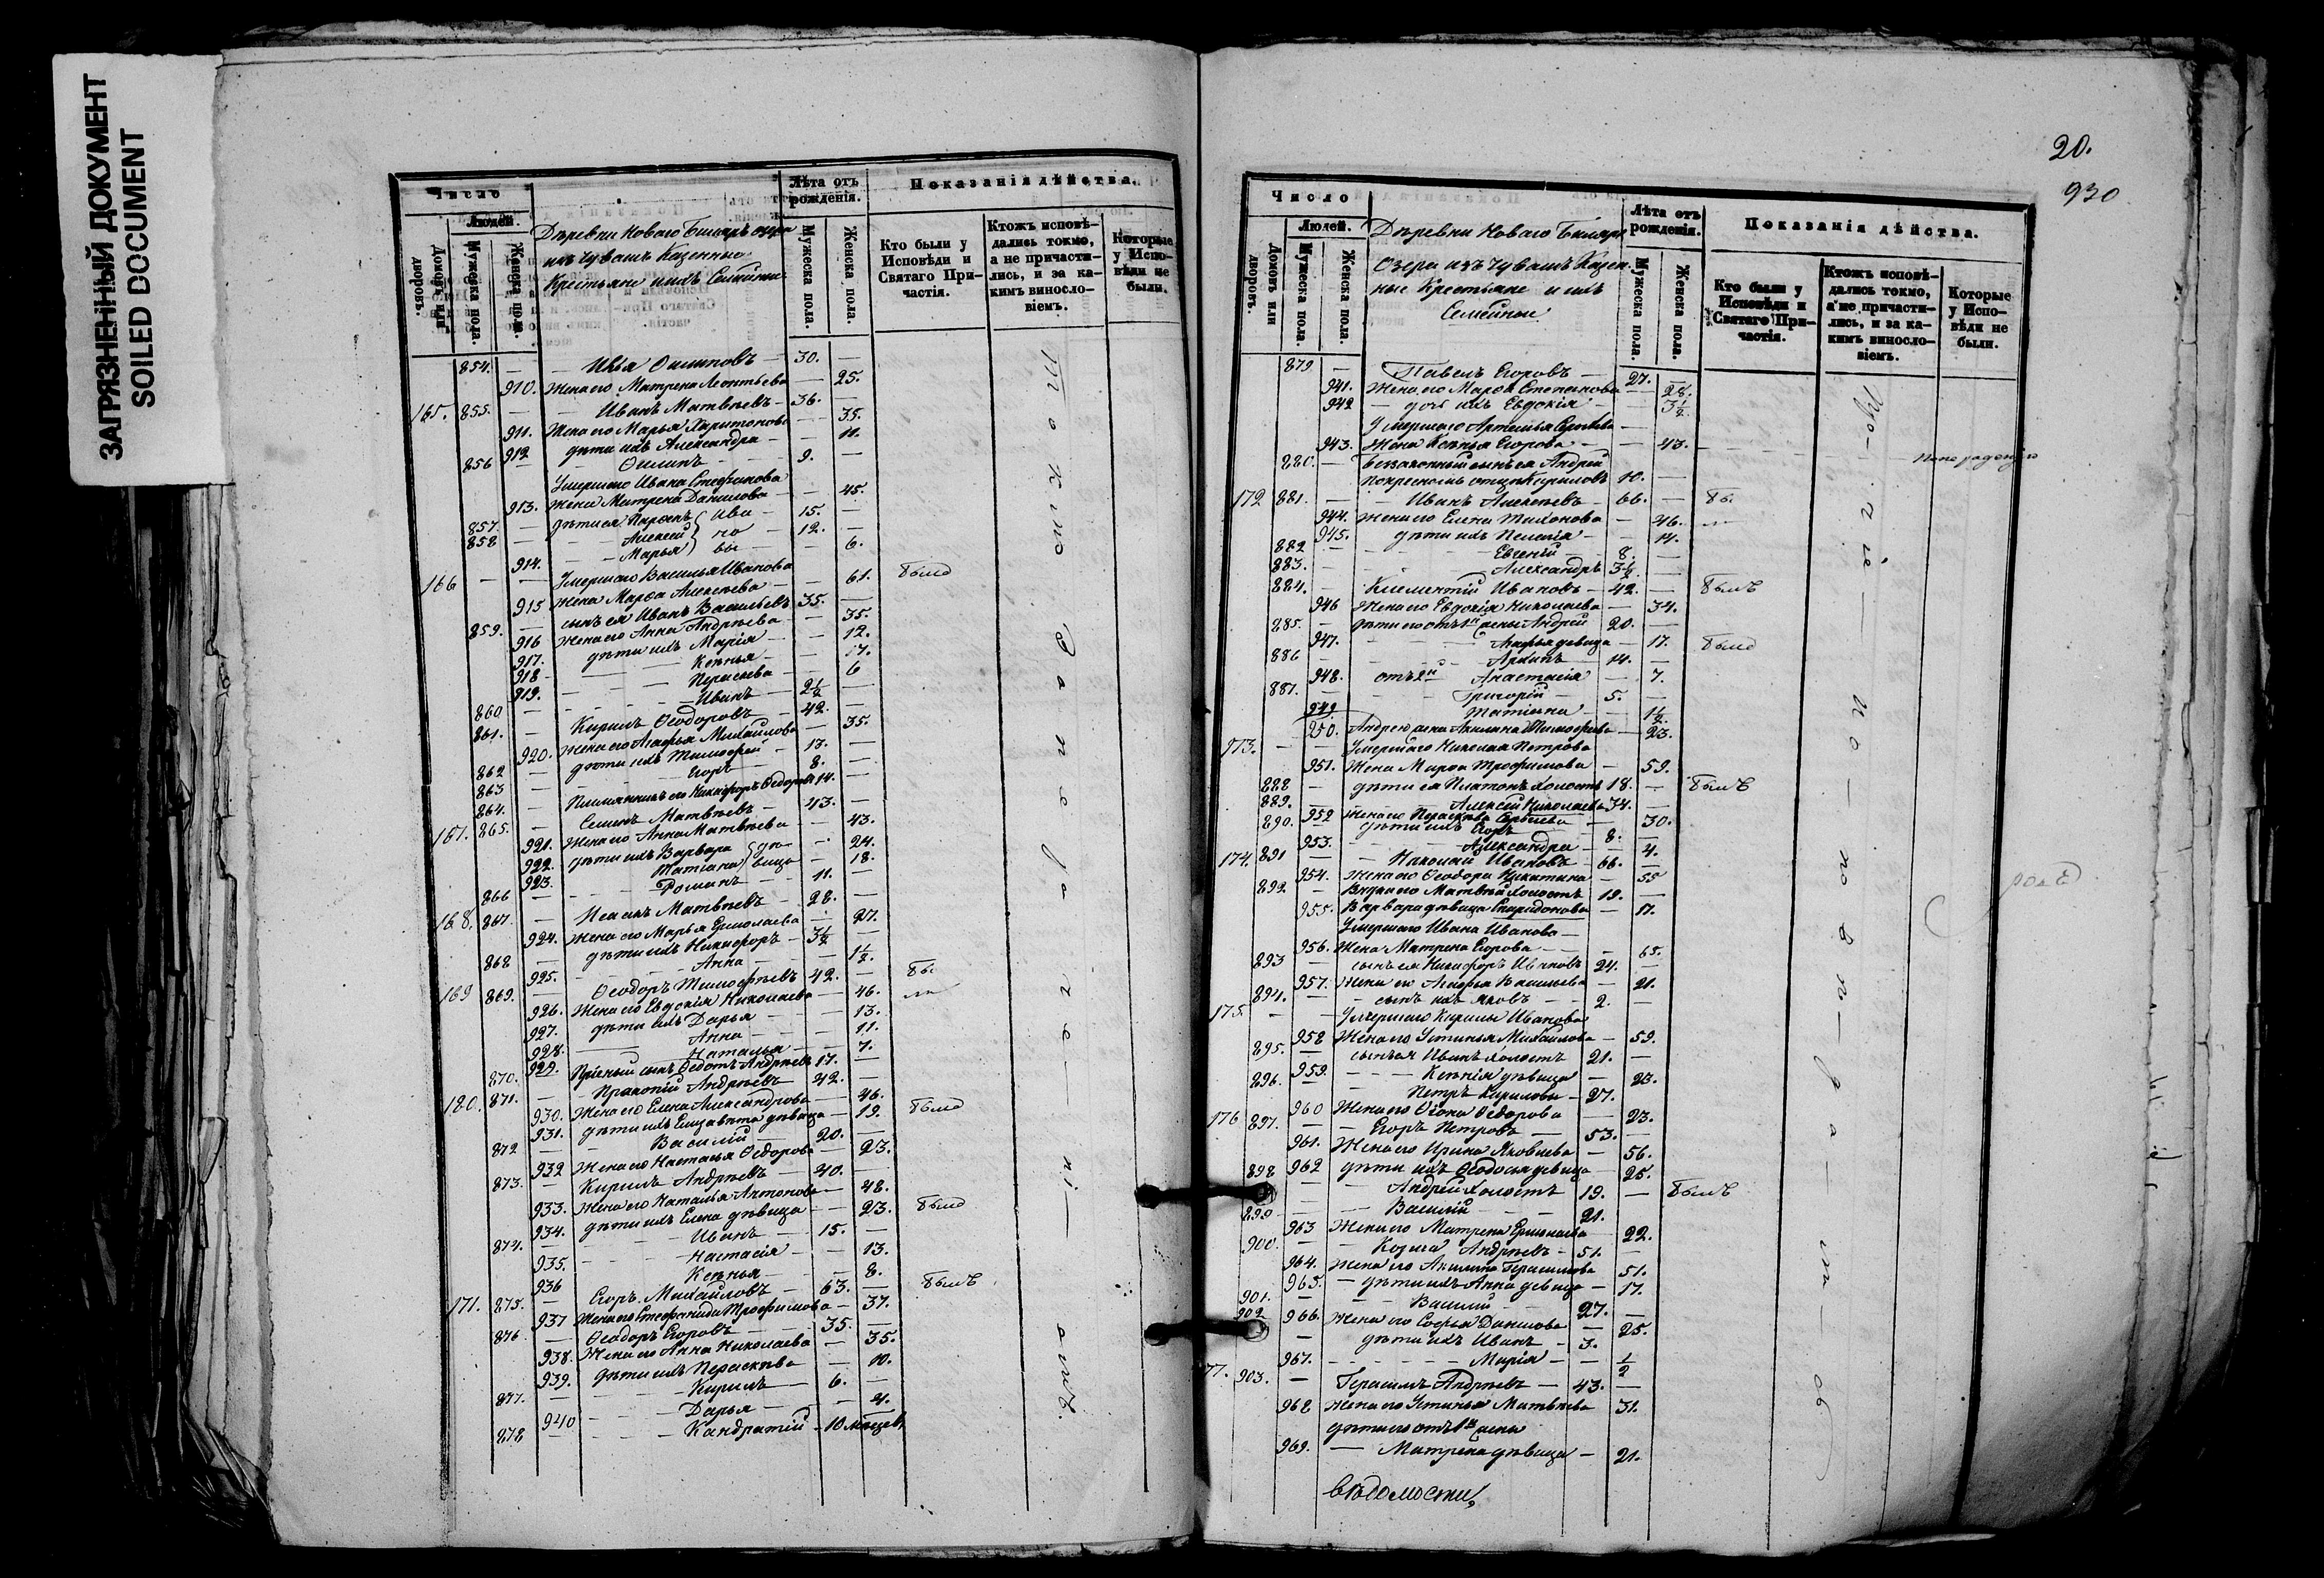 ЗАГРЯЗНЕННЫЙ ДОКУМЕНТ
SOILED DOCUMENT
Число
Людей.
Домовъ или дворовъ.
Мужеска пола.
Женска пола.
Деревни Новаго Биляръ озера
изъ Чувашъ Казенные
Крестьяне и ихъ Семейные
Лѣта отъ рожденія.
Мужеска пола.
Женска пола.
Показанія дѣйства.
Кто были у Исповѣди и Святаго Причастія.
Ктожъ исповѣдались токмо, а не причастились, и за какимъ винословіемъ.
Которые у Исповѣди не были.
854. Илья Филиповъ 30.
910. Жена его Матрена Леонтьева 25.
165. 855. Иванъ Матвѣевъ 36.
911. Жена его Марья Харитонова 35.
912 дѣти ихъ Александра 11.
856 Филипъ 9.
Умершаго Ивана Стефанова
913. Жена Матрена Данилова 45.
857. дѣти ея Иванова 15.
858 Алексей 12.
914. Марья 6.
166 Умершаго Василья Иванова
915 Жена Марфа Алексеева 61. была
859. сынъ ея Иванъ Васильевъ 35.
916 Жена его Анна Андрѣева 35.
917. дѣти ихъ Марія 12.
918 Ксенья 17.
919. Пераскева 6
860 Иванъ 2½
861. Кирилъ Ѳеодоровъ 42.
920. Жена его Агафья Михайлова 35.
862 дѣти ихъ Тимофей 13.
863 Егоръ 8.
864. Племянникъ его Никифоръ Ѳедоровъ 14.
167. 865. Семенъ Матвѣевъ 43.
921. Жена его Анна Матвѣева 43.
922. дѣти ихъ Варвара 24.
923. Татіана дѣвица 18.
866 Романъ 11.
168. 867. Матвѣевъ 28.
924. Жена его Марья Ермолаева 27.
868 дѣти ихъ Никифоръ 3½
925. Анна 1½.
169 869. Ѳеодоръ Тимофѣевъ 42. бы
926. Жена его Евдокія Николаева 46. ли
927. дѣти ихъ Дарья 13.
928. Анна 11.
929. Наталья 7.
870. Пріемный сынъ Ѳедотъ Андрѣевъ 17.
180. 871. Андрѣевъ 42.
930. Жена его Елена Александрова 46.
931. дѣти ихъ Елизавета дѣвица 19. была
872 Василій 20.
932 Жена его Настасья Ѳедорова 23.
873. Кирилъ Андрѣевъ 40.
933. Жена его Наталья Антонова 48.
934. дѣти ихъ Елена дѣвица 23. была
874. Иванъ 15.
935. Настасія 13.
936 Ксенья 8.
171. 875. Егоръ Михайловъ 63. былъ
937 Жена его Стефанида Трофимова 37.
876. Ѳеодоръ Егоровъ 35.
938. Жена его Анна Николаева 35.
939. дѣти ихъ Пераскева 10.
877. Кирилъ 6.
940 Дарья 4.
878 Кандратій 10 мѣсецевъ
20.
930
Число
Людей.
Домовъ или дворовъ.
Мужеска пола.
Женска пола.
Деревни Новаго Биляръ
Озера изъ Чувашъ Казен
ные Крестьяне и ихъ
Семейные
Лѣта отъ рожденія.
Мужеска пола.
Женска пола.
Показанія дѣйства.
Кто были у Исповѣди и Святаго Причастія.
Ктожъ исповѣдались токмо, а не причастились, и за какимъ винословіемъ.
Которые у Исповѣди не были.
879 Павелъ Егоровъ 27.
941. Жена его Марфа Степанова 28.
942 дочь ихъ Евдокія 3½.
Умершаго Артемья Сергѣева
943. Жена Ксенья Егорова 43.
880. Беззаконный сынъ ея Андрей
по крестномъ отцѣ Кириловъ 10.
172 881. Иванъ Алексѣевъ 66. бы
944. Жена его Елена Тихонова 46. ли
945. дѣти ихъ Пелагія 14.
882 Евгеній 8.
883. Александръ 3½
884. Климентій Ивановъ 42. былъ
946 Жена его Евдокія Николаева 34.
885. дѣти его отъ 1й жены Андрей 20.
947. Марья дѣвица 17. была
886 Архипъ 14.
948. отъ 2й Анастасія 7.
887. Григорій 5.
949 Татіана 1½.
250. Андрею жена Акилина Тимофеева 23.
173. Умершаго Николая Петрова
951. Жена Марфа Трофимова 59.
888 дѣти ея Платонъ Холостъ 18. былъ
889. Алексей Николаевъ 34.
952 Жена его Пераскева Сергѣева 30.
890. дѣти ихъ Егоръ 8.
953. Александра 4.
174. 891 Николай Ивановъ 66.
954. Жена его Ѳеодора Никитина 55
892 Внуки его Матвѣй Холостъ 19.
955. Варвара дѣвица Спиридонова 17.
Умершаго Ивана Иванова
956. Жена Матрена Егорова 65.
893 сынъ ея Никифоръ Ивановъ 24.
957. Жена его Агафья Васильева 21.
894. сынъ ихъ Яковъ 2.
175. Умершаго Кирилы Иванова
958 Жена его Устинья Михайлова 59.
895. сынъ ея Иванъ Холостъ 21.
959. Ксенія дѣвица 23.
896. Петръ Кириловъ 27.
960 Жена его Ѳедорова 23.
176 897. Егоръ Петровъ 53.
961. Жена его Ирина Яковлева 56.
962 дѣти ихъ Ѳеодосья дѣвица 25.
898 Андрей Холостъ 19. былъ
899 Василій 21.
963 Жена его Матрена Ермолаева 22.
900. Козьма Андрѣевъ 51.
964. Жена его Акилина Герасимова 51.
965. дѣти ихъ Анна дѣвица 17.
901. Василій 27.
966. Жена его Софья Данилова 25.
902 дѣти ихъ Иванъ 3.
967. Марія ½
77. 903. Герасимъ Андрѣевъ 43.
968 Жена его Устинья Матвѣева 31.
дѣти его отъ 1й жены
969. Матрена дѣвица 21.
вѣдомости,